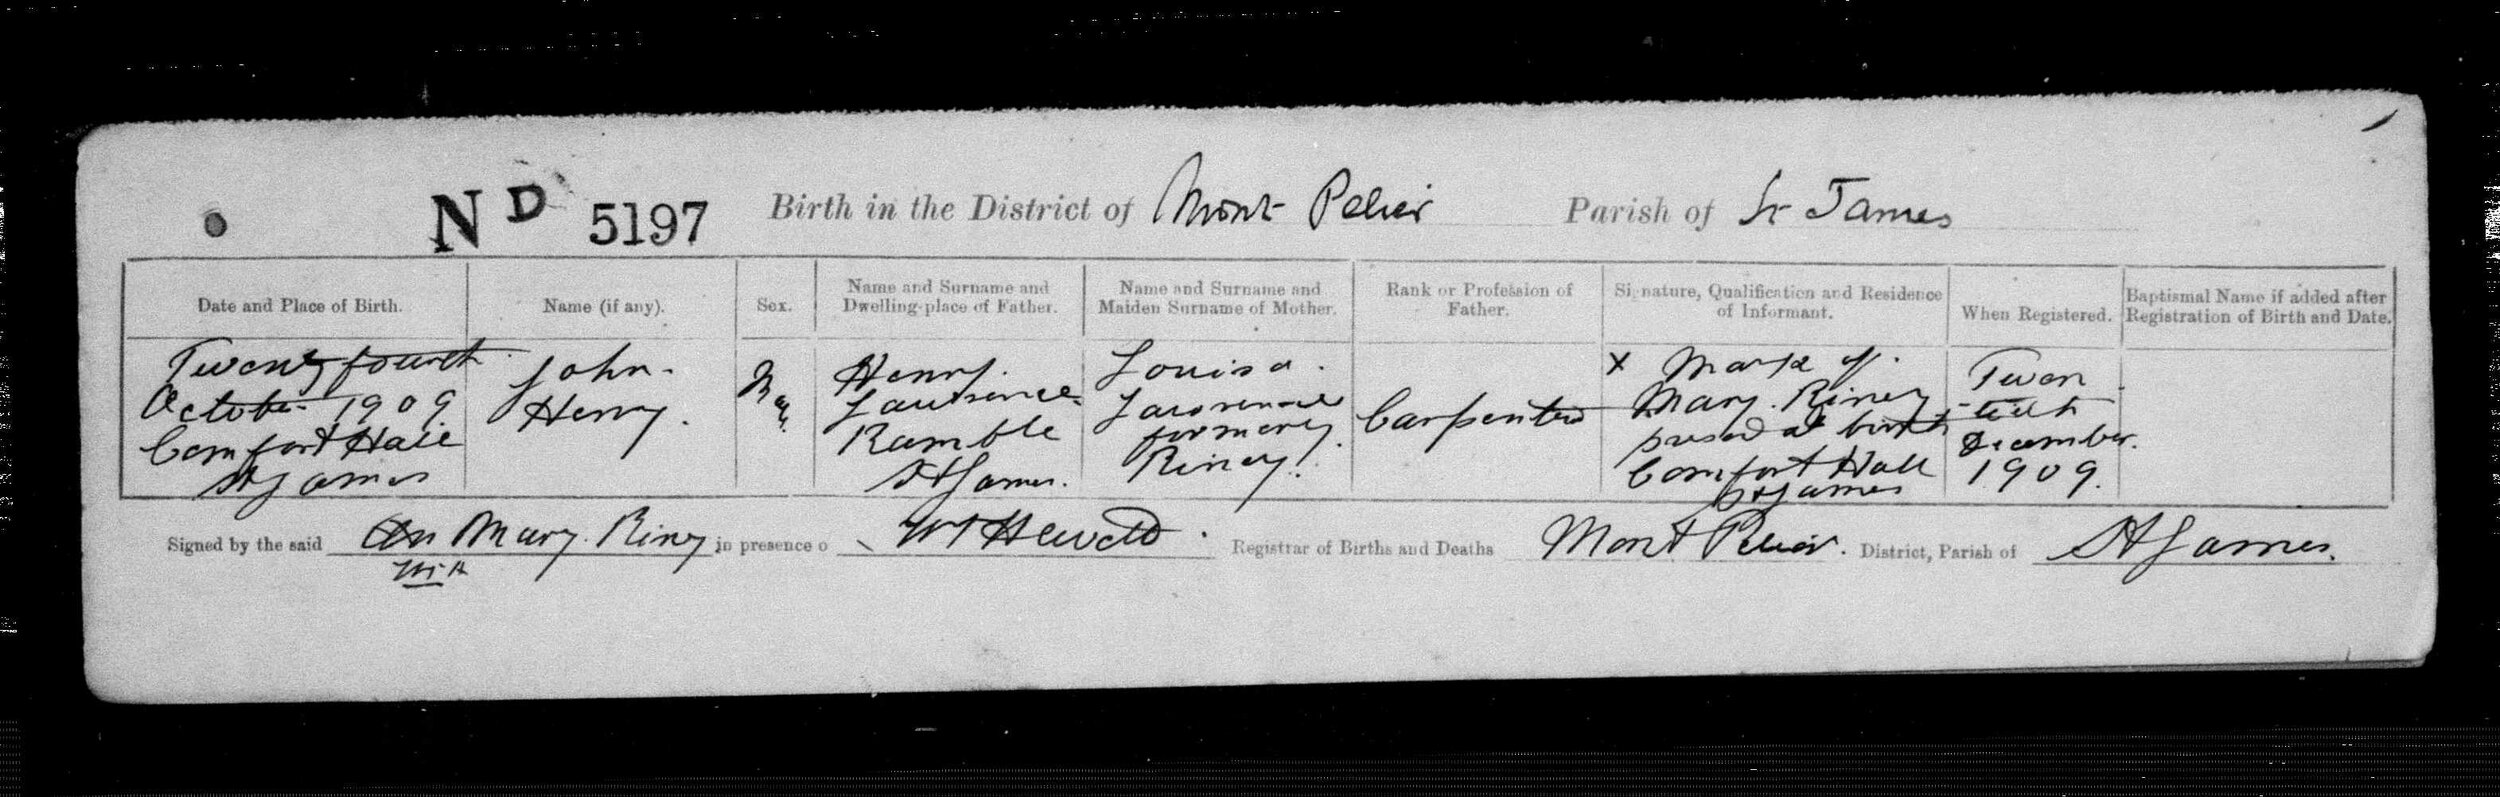 ND 5197 Birth in the District of Mont Pelier Parish of St James
Date and Place of Birth.
Name (if any).
Sex.
Name and Surname and
Dwelling-place of Father.
Name and Surname and
Maiden Surname of Mother.
Rank or Profession of
Father.
Signature, Qualification and Residence
of Informant.
When Registered.
Baptismal Name if added after
Registration of Birth and Date.
Twenty fourth
October 1909
Comfort Hall
St James
John
Henry.
Henry
Lawrence
Ramble
St James.
Louisa
Lawrence
formerly
Riney.
Carpenter
X Mark of
Mary Riney
present at birth
Comfort Hall
St James
Twen
-tieth
December
1909.
Signed by the said Mary Riney in presence o Registrar of Births and Deaths Mont Pelier. District, Parish of St James.